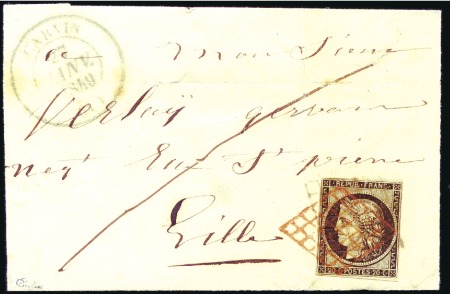 CARVIN
JANV.
1849
a Monsieur
Verlay germain
negt Rue St pierre
Lille
REPUB. FRANC.
20 c POSTES 20 c